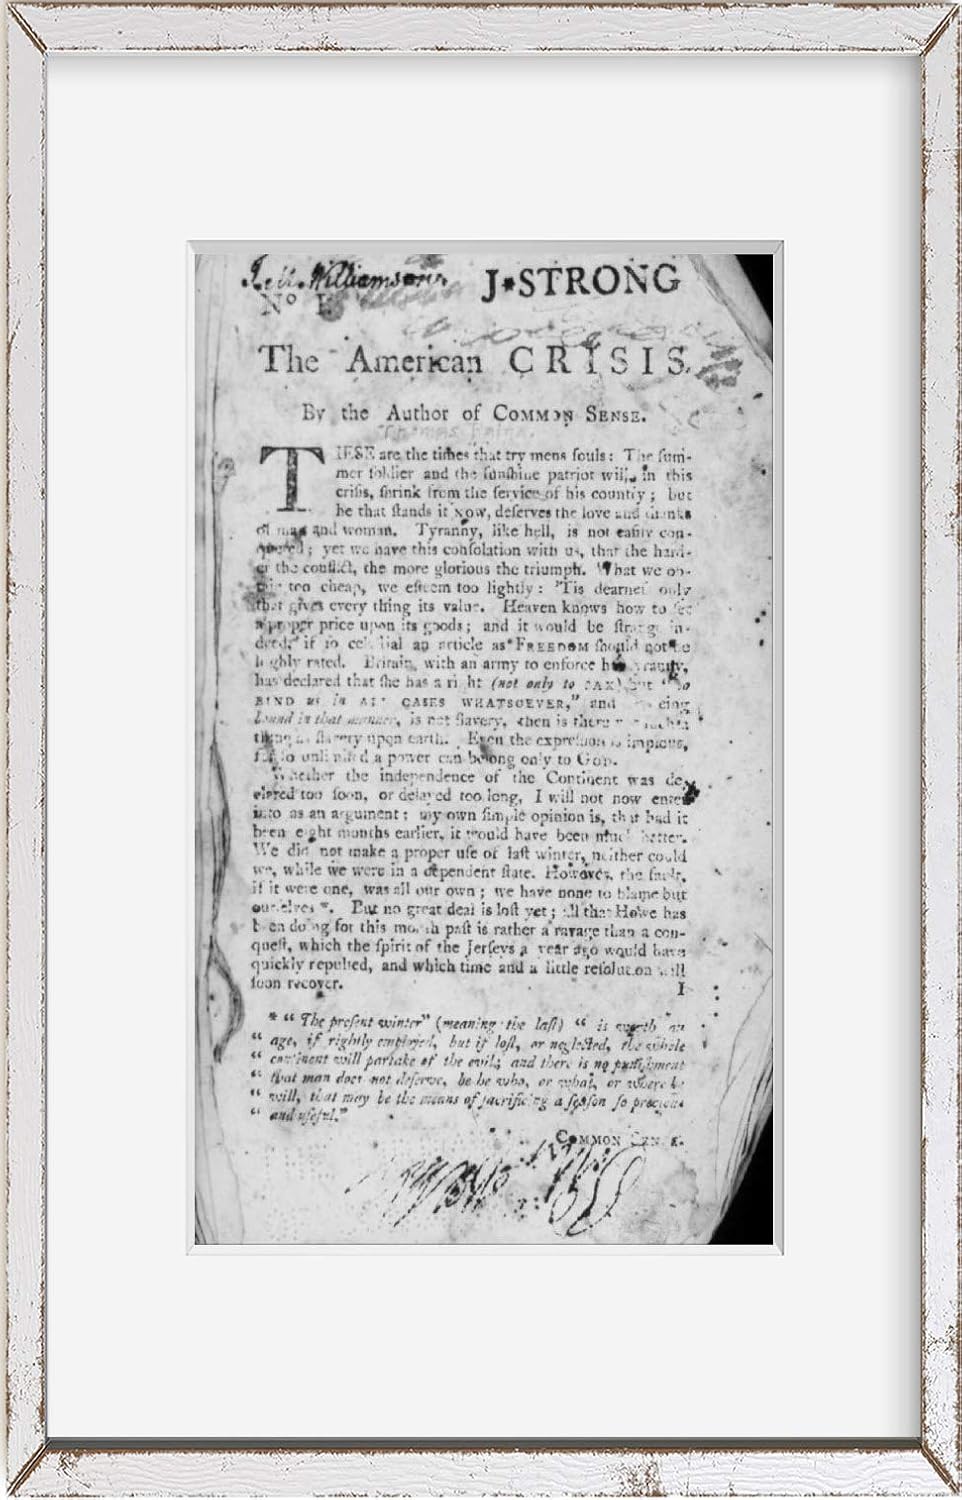 Williamson J*STRONG
No I.
The American CRISIS.
By the Author of COMMON SENSE.
Thomas Paine.
THESE are the times that try mens ſouls: The ſum-
mer ſoldier and the ſunſhine patriot will, in this
criſis, ſhrink from the ſervice of his country; but
he that ſtands it NOW, deſerves the love and thanks
of man and woman. Tyranny, like hell, is not eaſily con-
quered; yet we have this conſolation with us, that the hard-
er the conflict, the more glorious the triumph. What we ob-
tain too cheap, we eſteem too lightly: 'Tis dearneſs only
that gives every thing its value. Heaven knows how to ſet
a proper price upon its goods; and it would be ſtrange in-
deed, if ſo celeſtial an article as FREEDOM ſhould not be
highly rated. Britain, with an army to enforce her tyranny,
has declared that ſhe has a right (not only to TAX) but "to
BIND us in ALL CASES WHATSOEVER," and being
bound in that manner, is not ſlavery, then is there not ſuch a
thing as ſlavery upon earth. Even the expreſſion is impious,
for ſo unlimited a power can belong only to GOD.
Whether the independence of the Continent was de-
clared too ſoon, or delayed too long, I will not now enter
into as an argument; my own ſimple opinion is, that had it
been eight months earlier, it would have been much better.
We did not make a proper uſe of laſt winter, neither could
we, while we were in a dependent ſtate. However, the fault,
if it were one, was all our own; we have none to blame but
ourſelves *. But no great deal is loſt yet; all that Howe has
been doing for this month paſt is rather a ravage than a con-
queſt, which the ſpirit of the Jerſeys a year ago would have
quickly repulſed, and which time and a little reſolution will
ſoon recover. I
* "The preſent winter" (meaning the laſt) "is worth an
" age, if rightly employed, but if loſt, or neglected, the whole
" continent will partake of the evil; and there is no puniſhment
" that man does not deſerve, be he who, or what, or where he
" will, that may be the means of ſacrificing a ſeaſon ſo precious
" and uſeful."
COMMON SENSE.